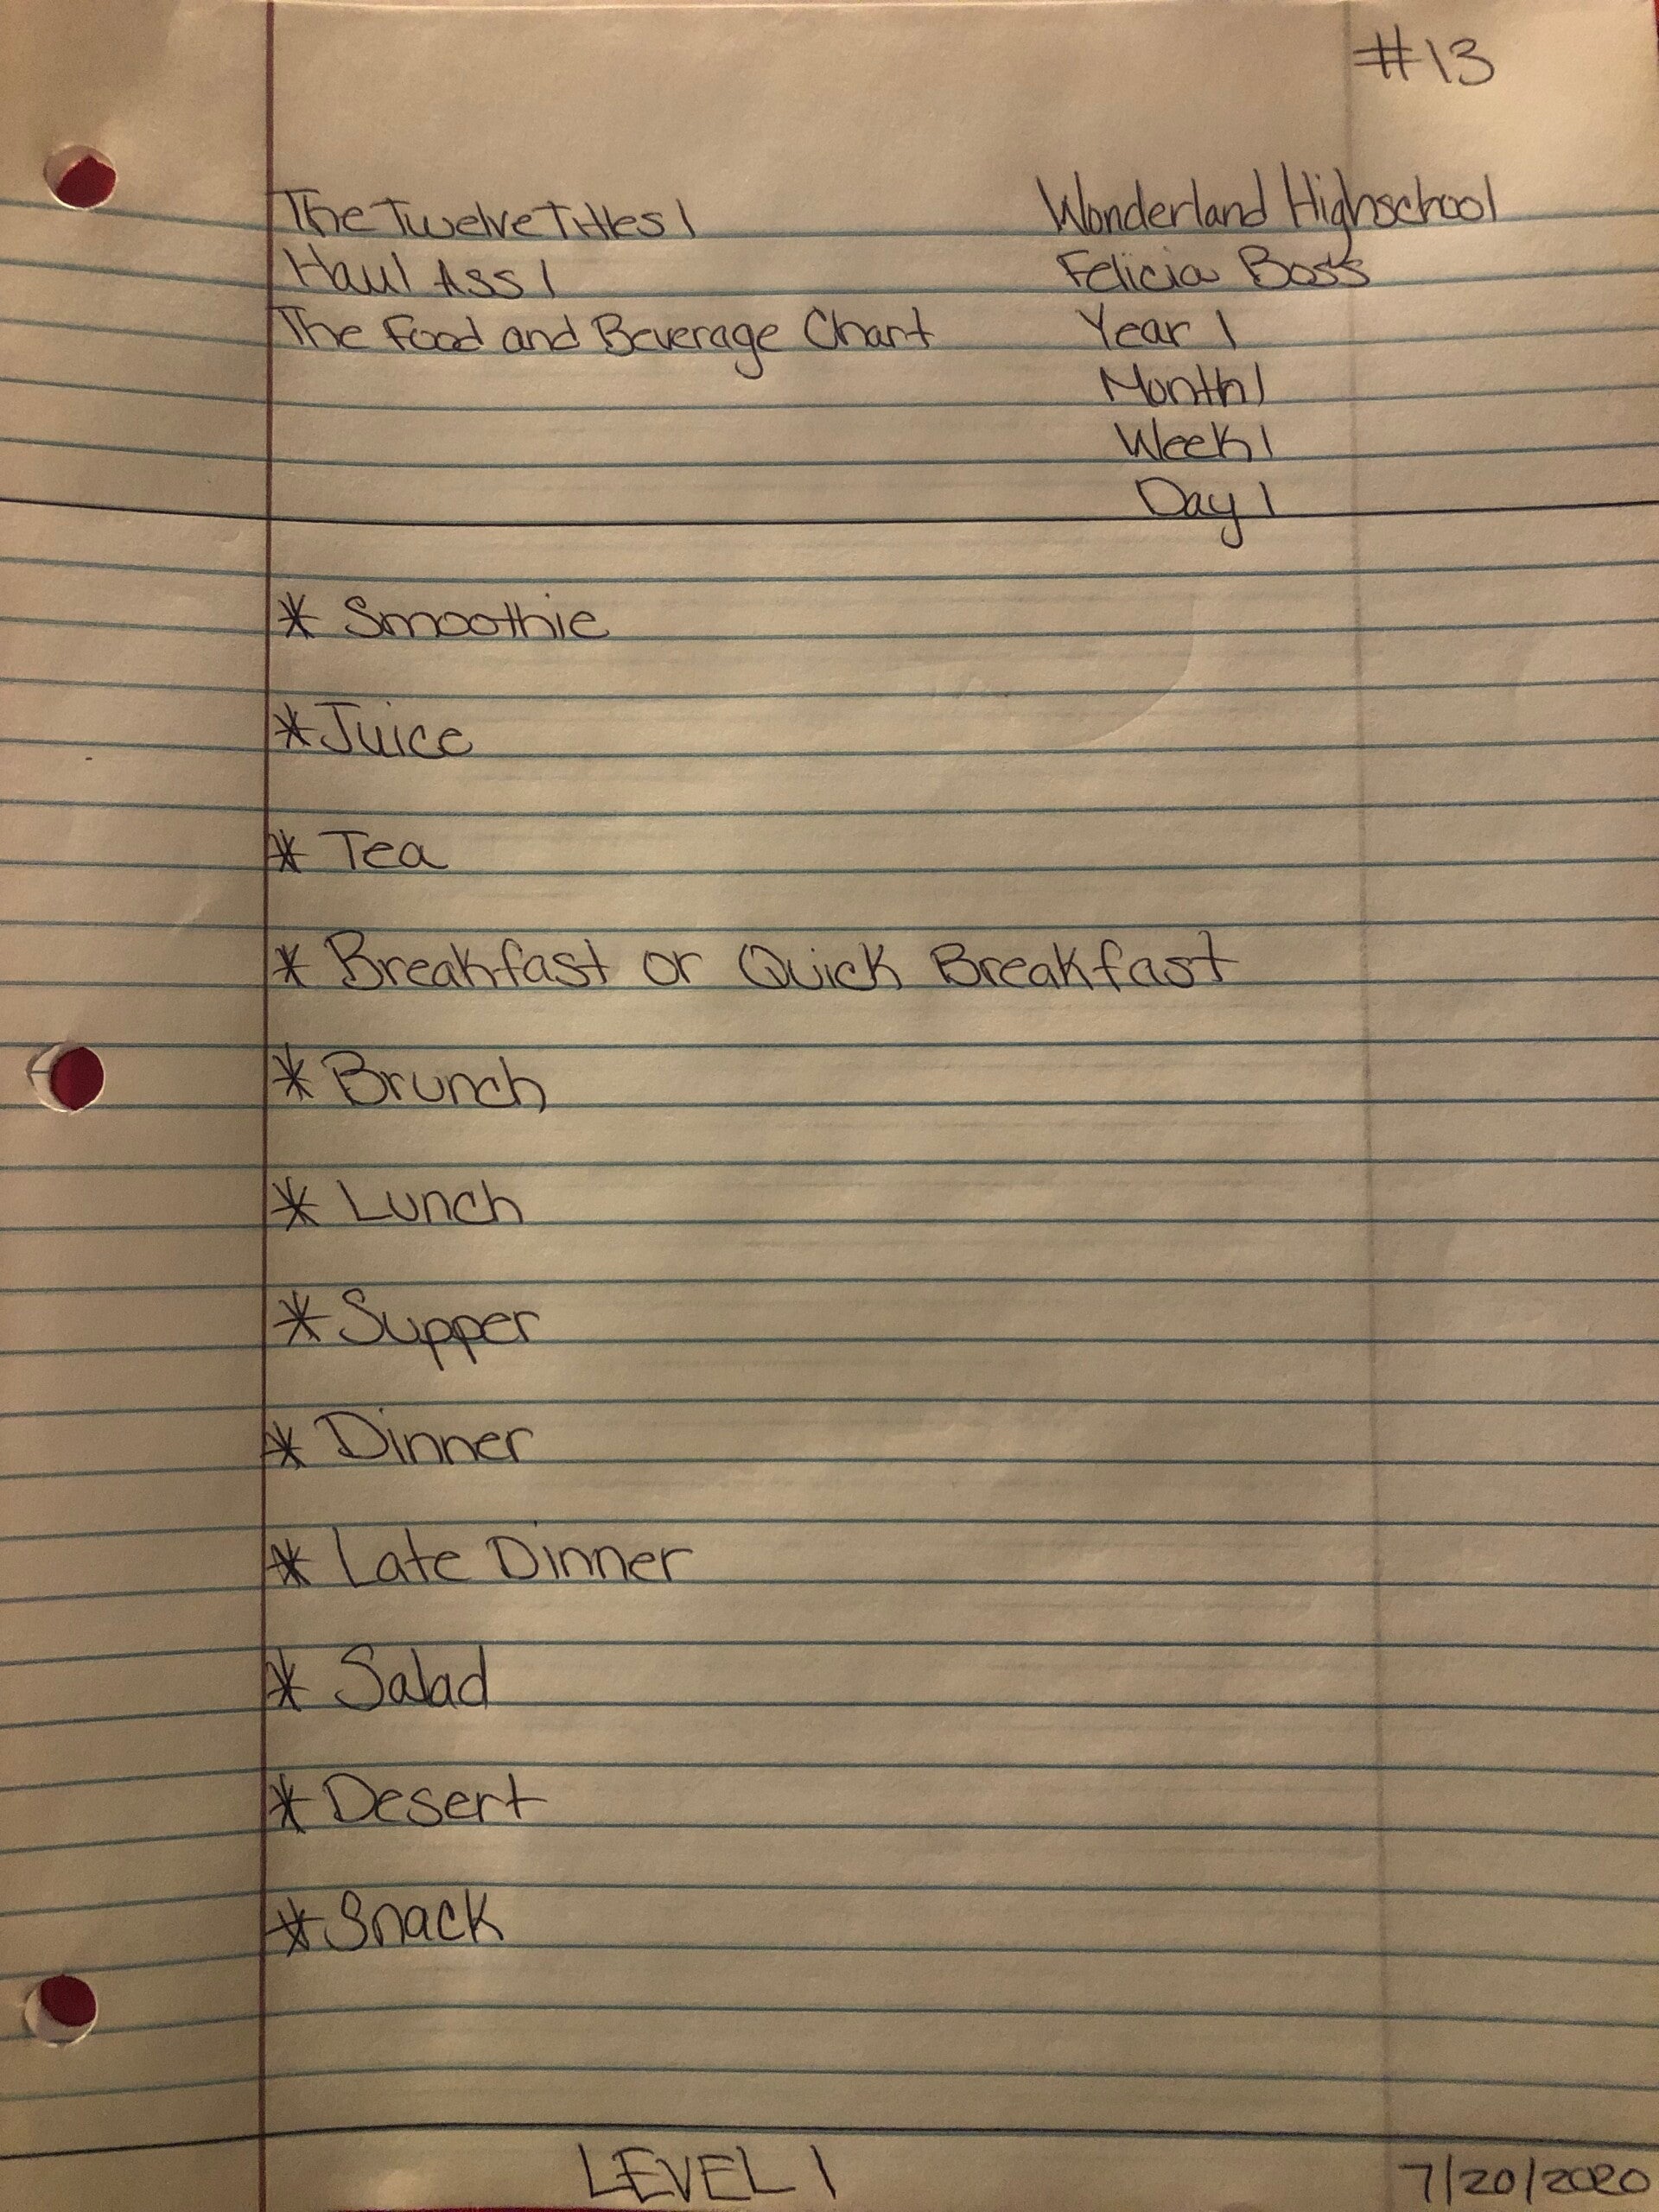 #13
The Twelve Titles 1
Wonderland Highschool
Haul Ass 1
Felicia Boss
The Food and Beverage Chart
Year 1
Month 1
Week 1
Day 1
* Smoothie
* Juice
* Tea
* Breakfast or Quick Breakfast
* Brunch
* Lunch
* Supper
* Dinner
* Late Dinner
* Salad
* Desert
* Snack
LEVEL 1
7/20/2020